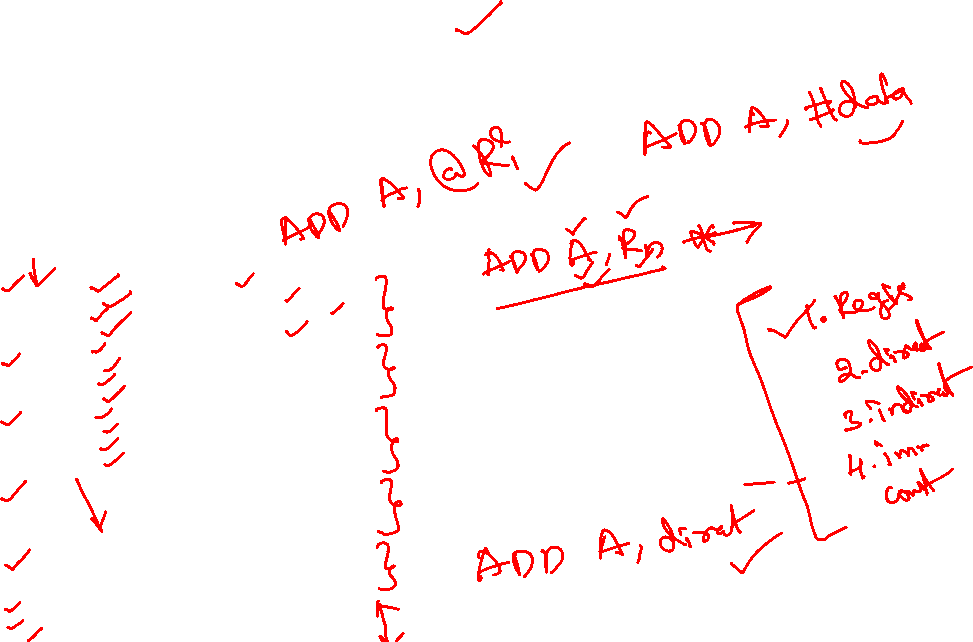 ADD A, #data
ADD A, @Ri
ADD A, Rn
1. Regis
2. direct
3. indirect
4. imm
const
ADD A, direct